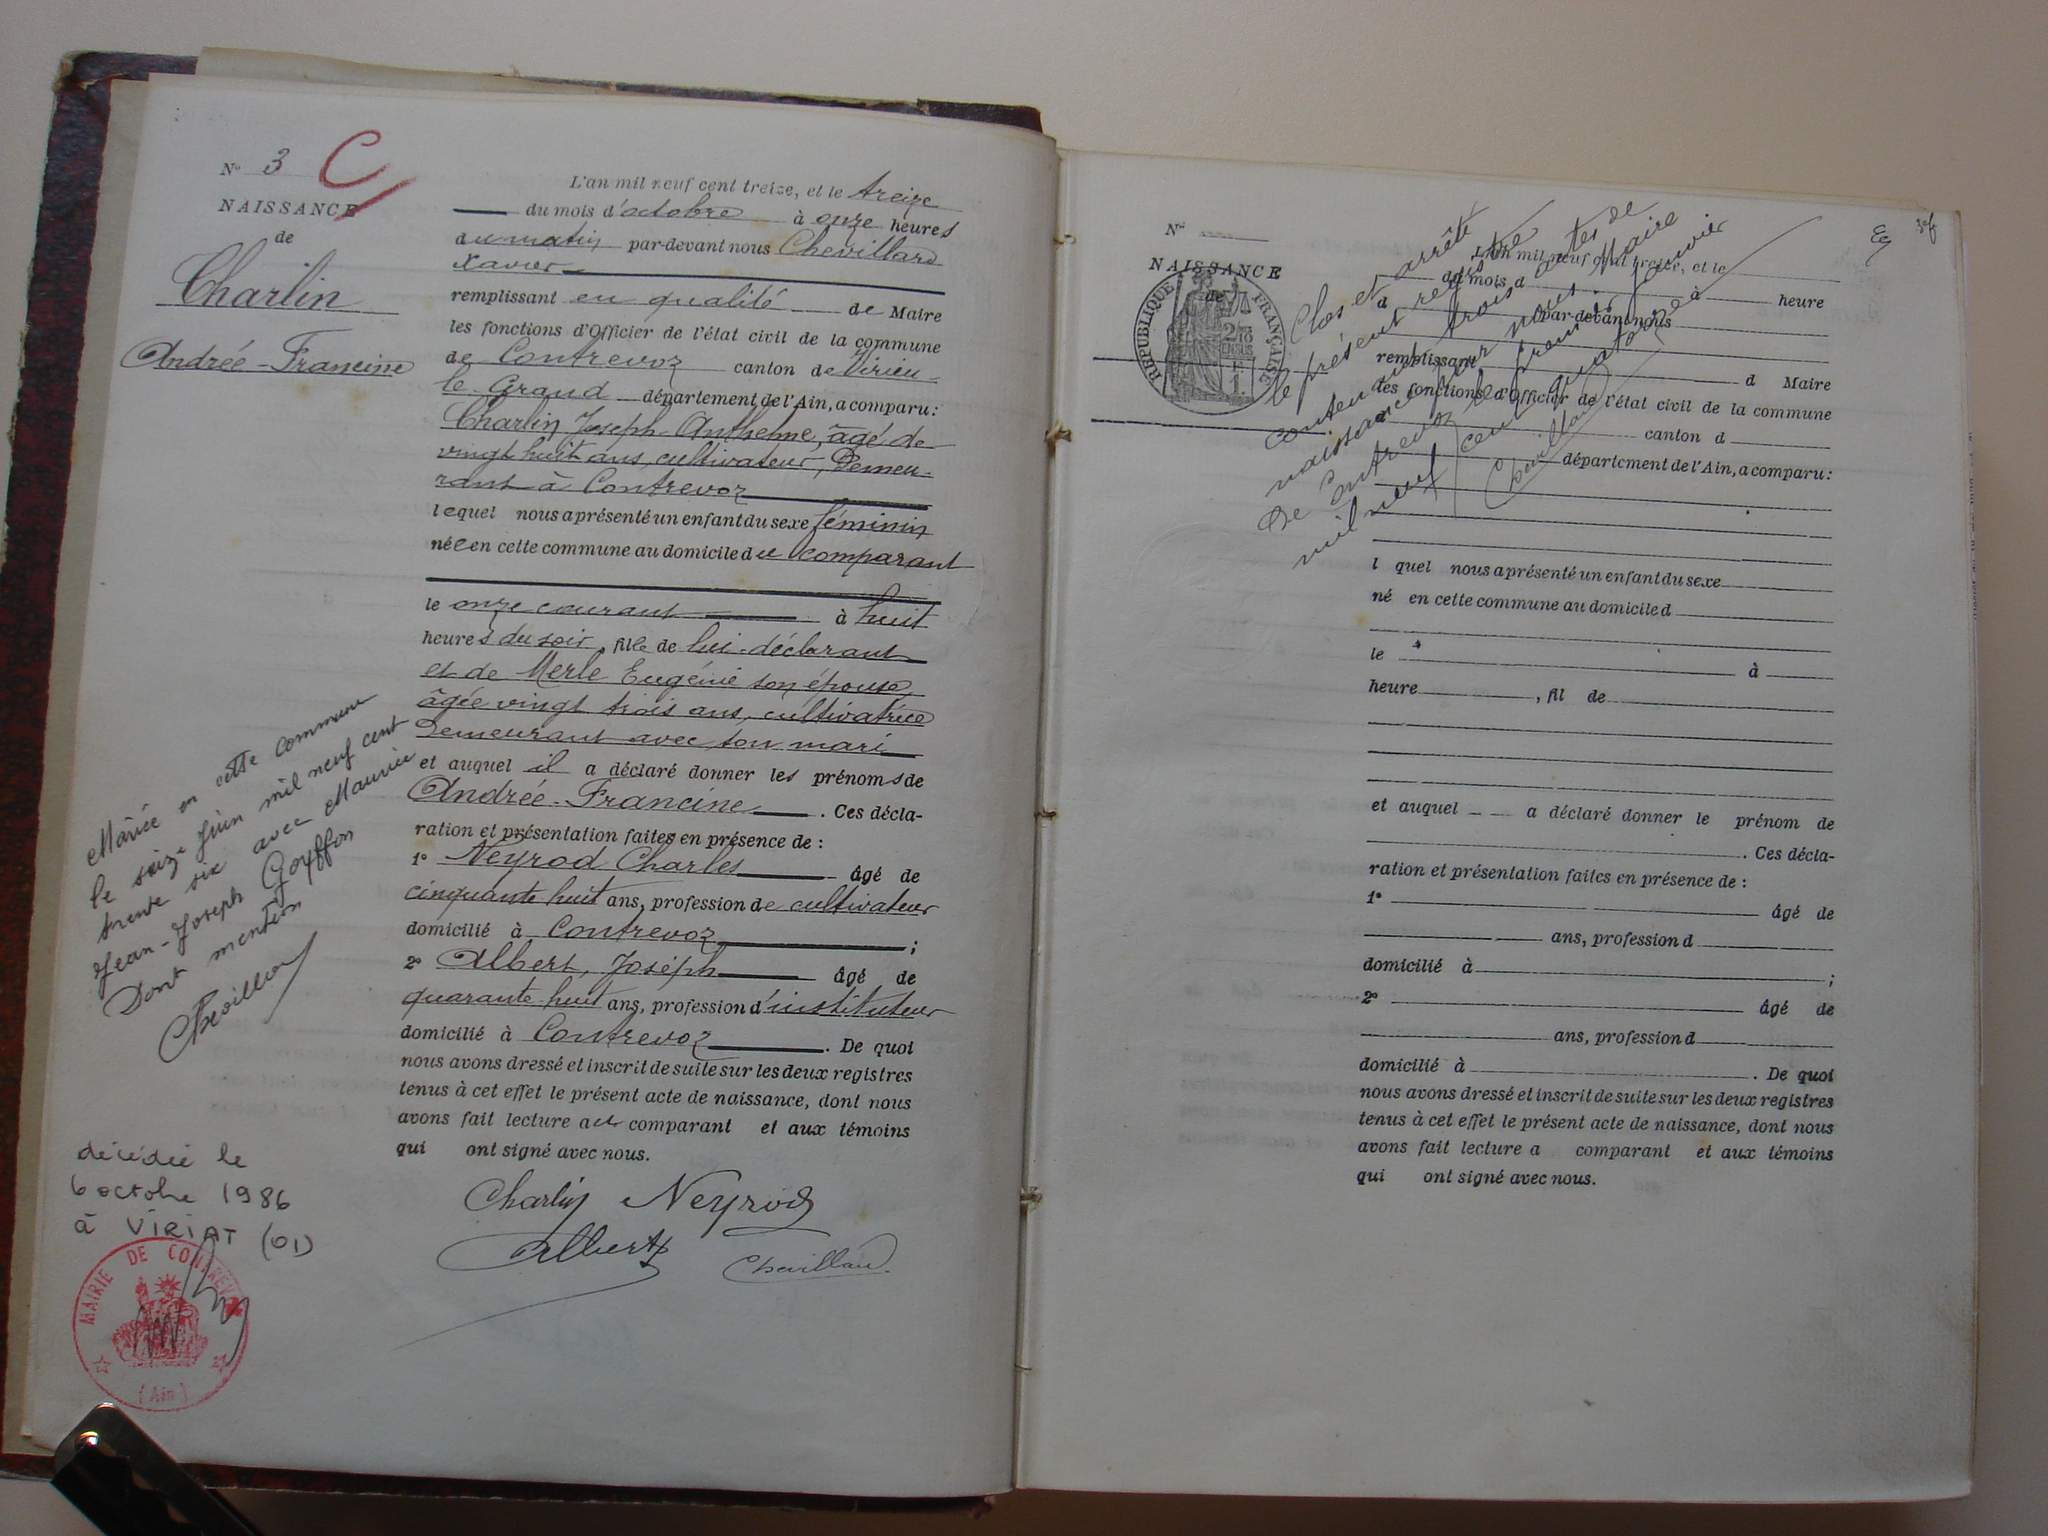 N° 3 C
NAISSANCE
de
Charlin
Andrée-Francine
L'an mil neuf cent treize, et le treize
du mois d'octobre à onze heures
du matin par-devant nous Chevillard
Xavier
remplissant en qualité de Maire
les fonctions d'Officier de l'état civil de la commune
de Contrevoz canton de Virieu-
le Grand département de l'Ain, a comparu:
Charlin Joseph Anthelme, âgé de
vingt huit ans, cultivateur, Demeu-
rant à Contrevoz
lequel nous a présenté un enfant du sexe féminin
née en cette commune au domicile du comparant
le onze courant à huit
heures du soir, fille de lui déclarant
et de Merle Eugénie son épouse,
âgée vingt trois ans, cultivatrice
Demeurant avec son mari
et auquel il a déclaré donner les prénoms de
Andrée-Francine. Ces décla-
ration et présentation faites en présence de :
1° Neyrod Charles âgé de
cinquante huit ans, profession de cultivateur
domicilié à Contrevoz ;
2° Albert, Joseph âgé de
quarante huit ans, profession d'instituteur
domicilié à Contrevoz. De quoi
nous avons dressé et inscrit de suite sur les deux registres
tenus à cet effet le présent acte de naissance, dont nous
avons fait lecture au comparant et aux témoins
qui ont signé avec nous.
Charlin Neyrod
Albert Chevillard
Mariée en cette commune
le seize Juin mil neuf cent
trente six avec Maurice
Jean-Joseph Goyffon
Dont mention
décédée le
6 octobre 1986
à VIRIAT (01)
MAIRIE DE CONTREVOZ
(Ain)
N°
NAISSANCE
de
RÉPUBLIQUE FRANÇAISE
Clos et arrêté
le présent registre
contenant trois actes de
naissance par nous Maire
de Contrevoz le premier janvier
mil neuf cent quatorze
Chevillard
L'an mil neuf cent treize, et le
du mois d à heure
d par-devant nous
remplissant d Maire
les fonctions d'Officier de l'état civil de la commune
d canton d
département de l'Ain, a comparu:
l quel nous a présenté un enfant du sexe
né en cette commune au domicile d
le à
heure , fil de
et auquel a déclaré donner le prénom de
. Ces décla-
ration et présentation faites en présence de :
1° âgé de
ans, profession d
domicilié à ;
2° âgé de
ans, profession d
domicilié à . De quoi
nous avons dressé et inscrit de suite sur les deux registres
tenus à cet effet le présent acte de naissance, dont nous
avons fait lecture a comparant et aux témoins
qui ont signé avec nous.